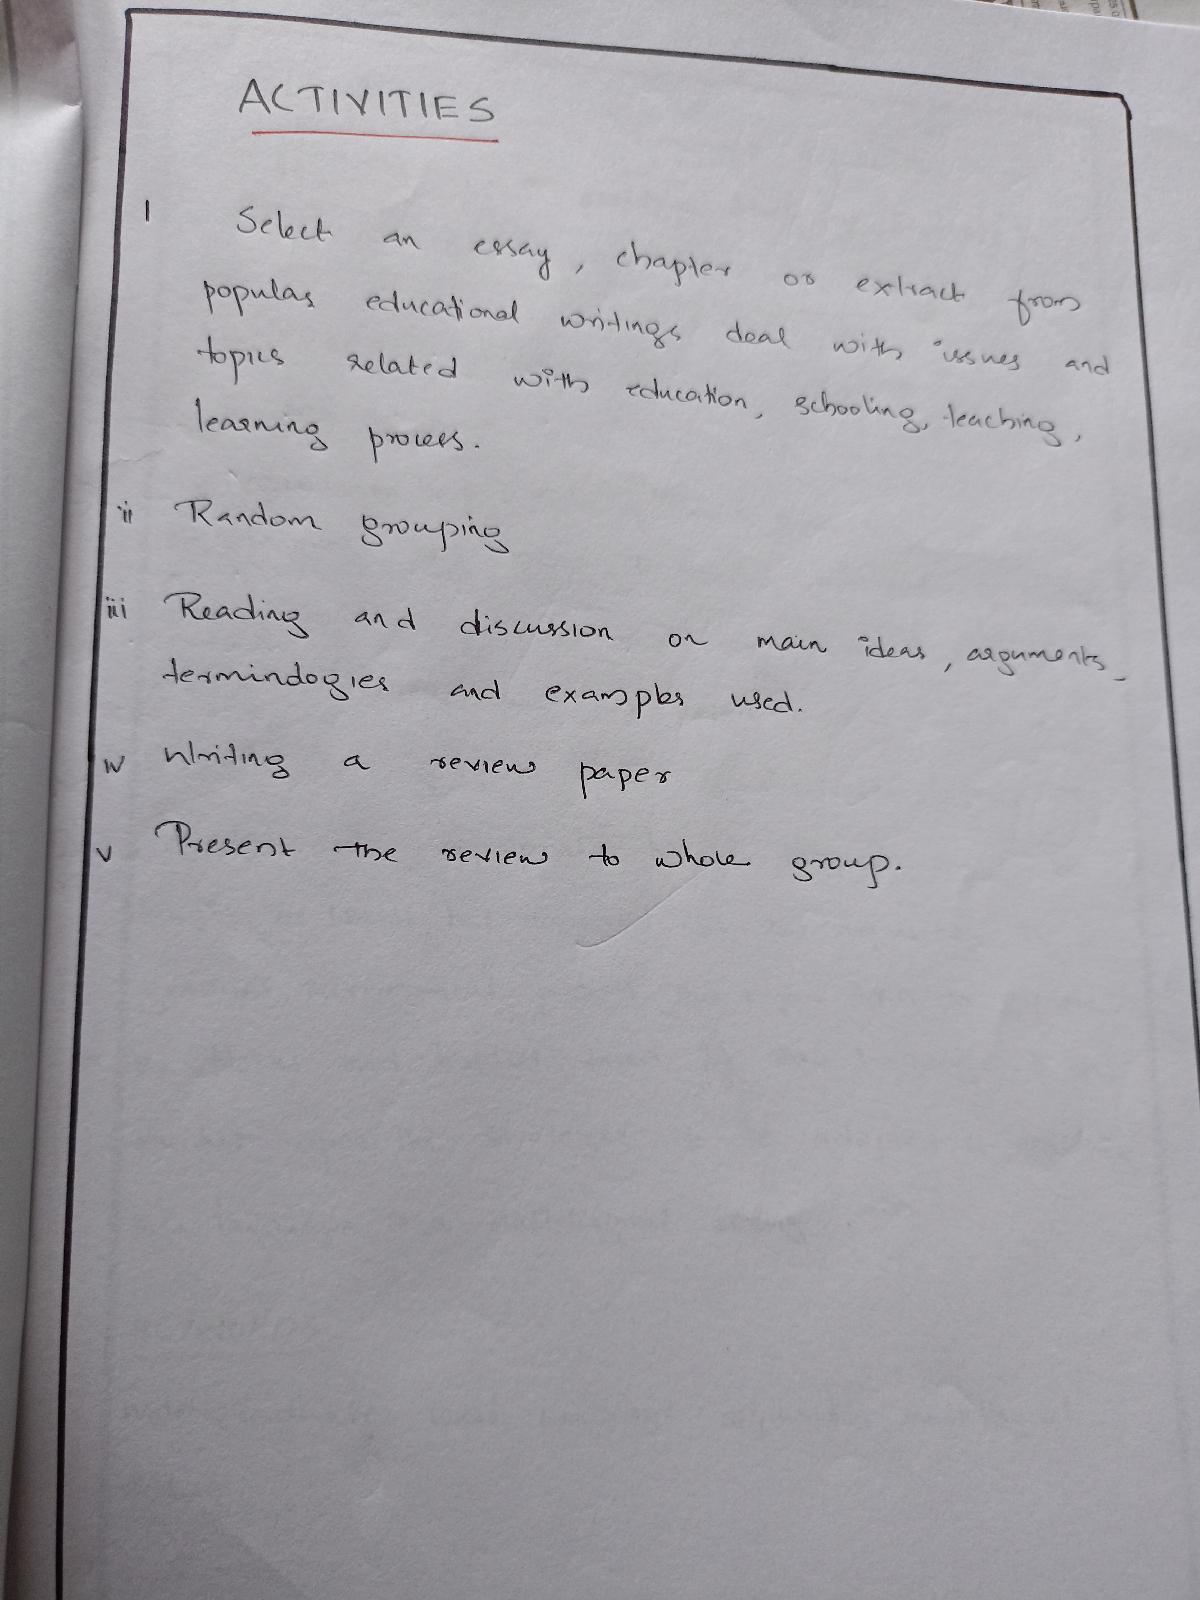 ACTIVITIES
I Select an essay, chapter or extract from
popular educational writings deal with issues and
topics related with education, schooling, teaching,
learning process.
ii Random grouping
iii Reading and discussion on main ideas, arguments
terminologies and examples used.
iv Writing a review paper
v Present the review to whole group.